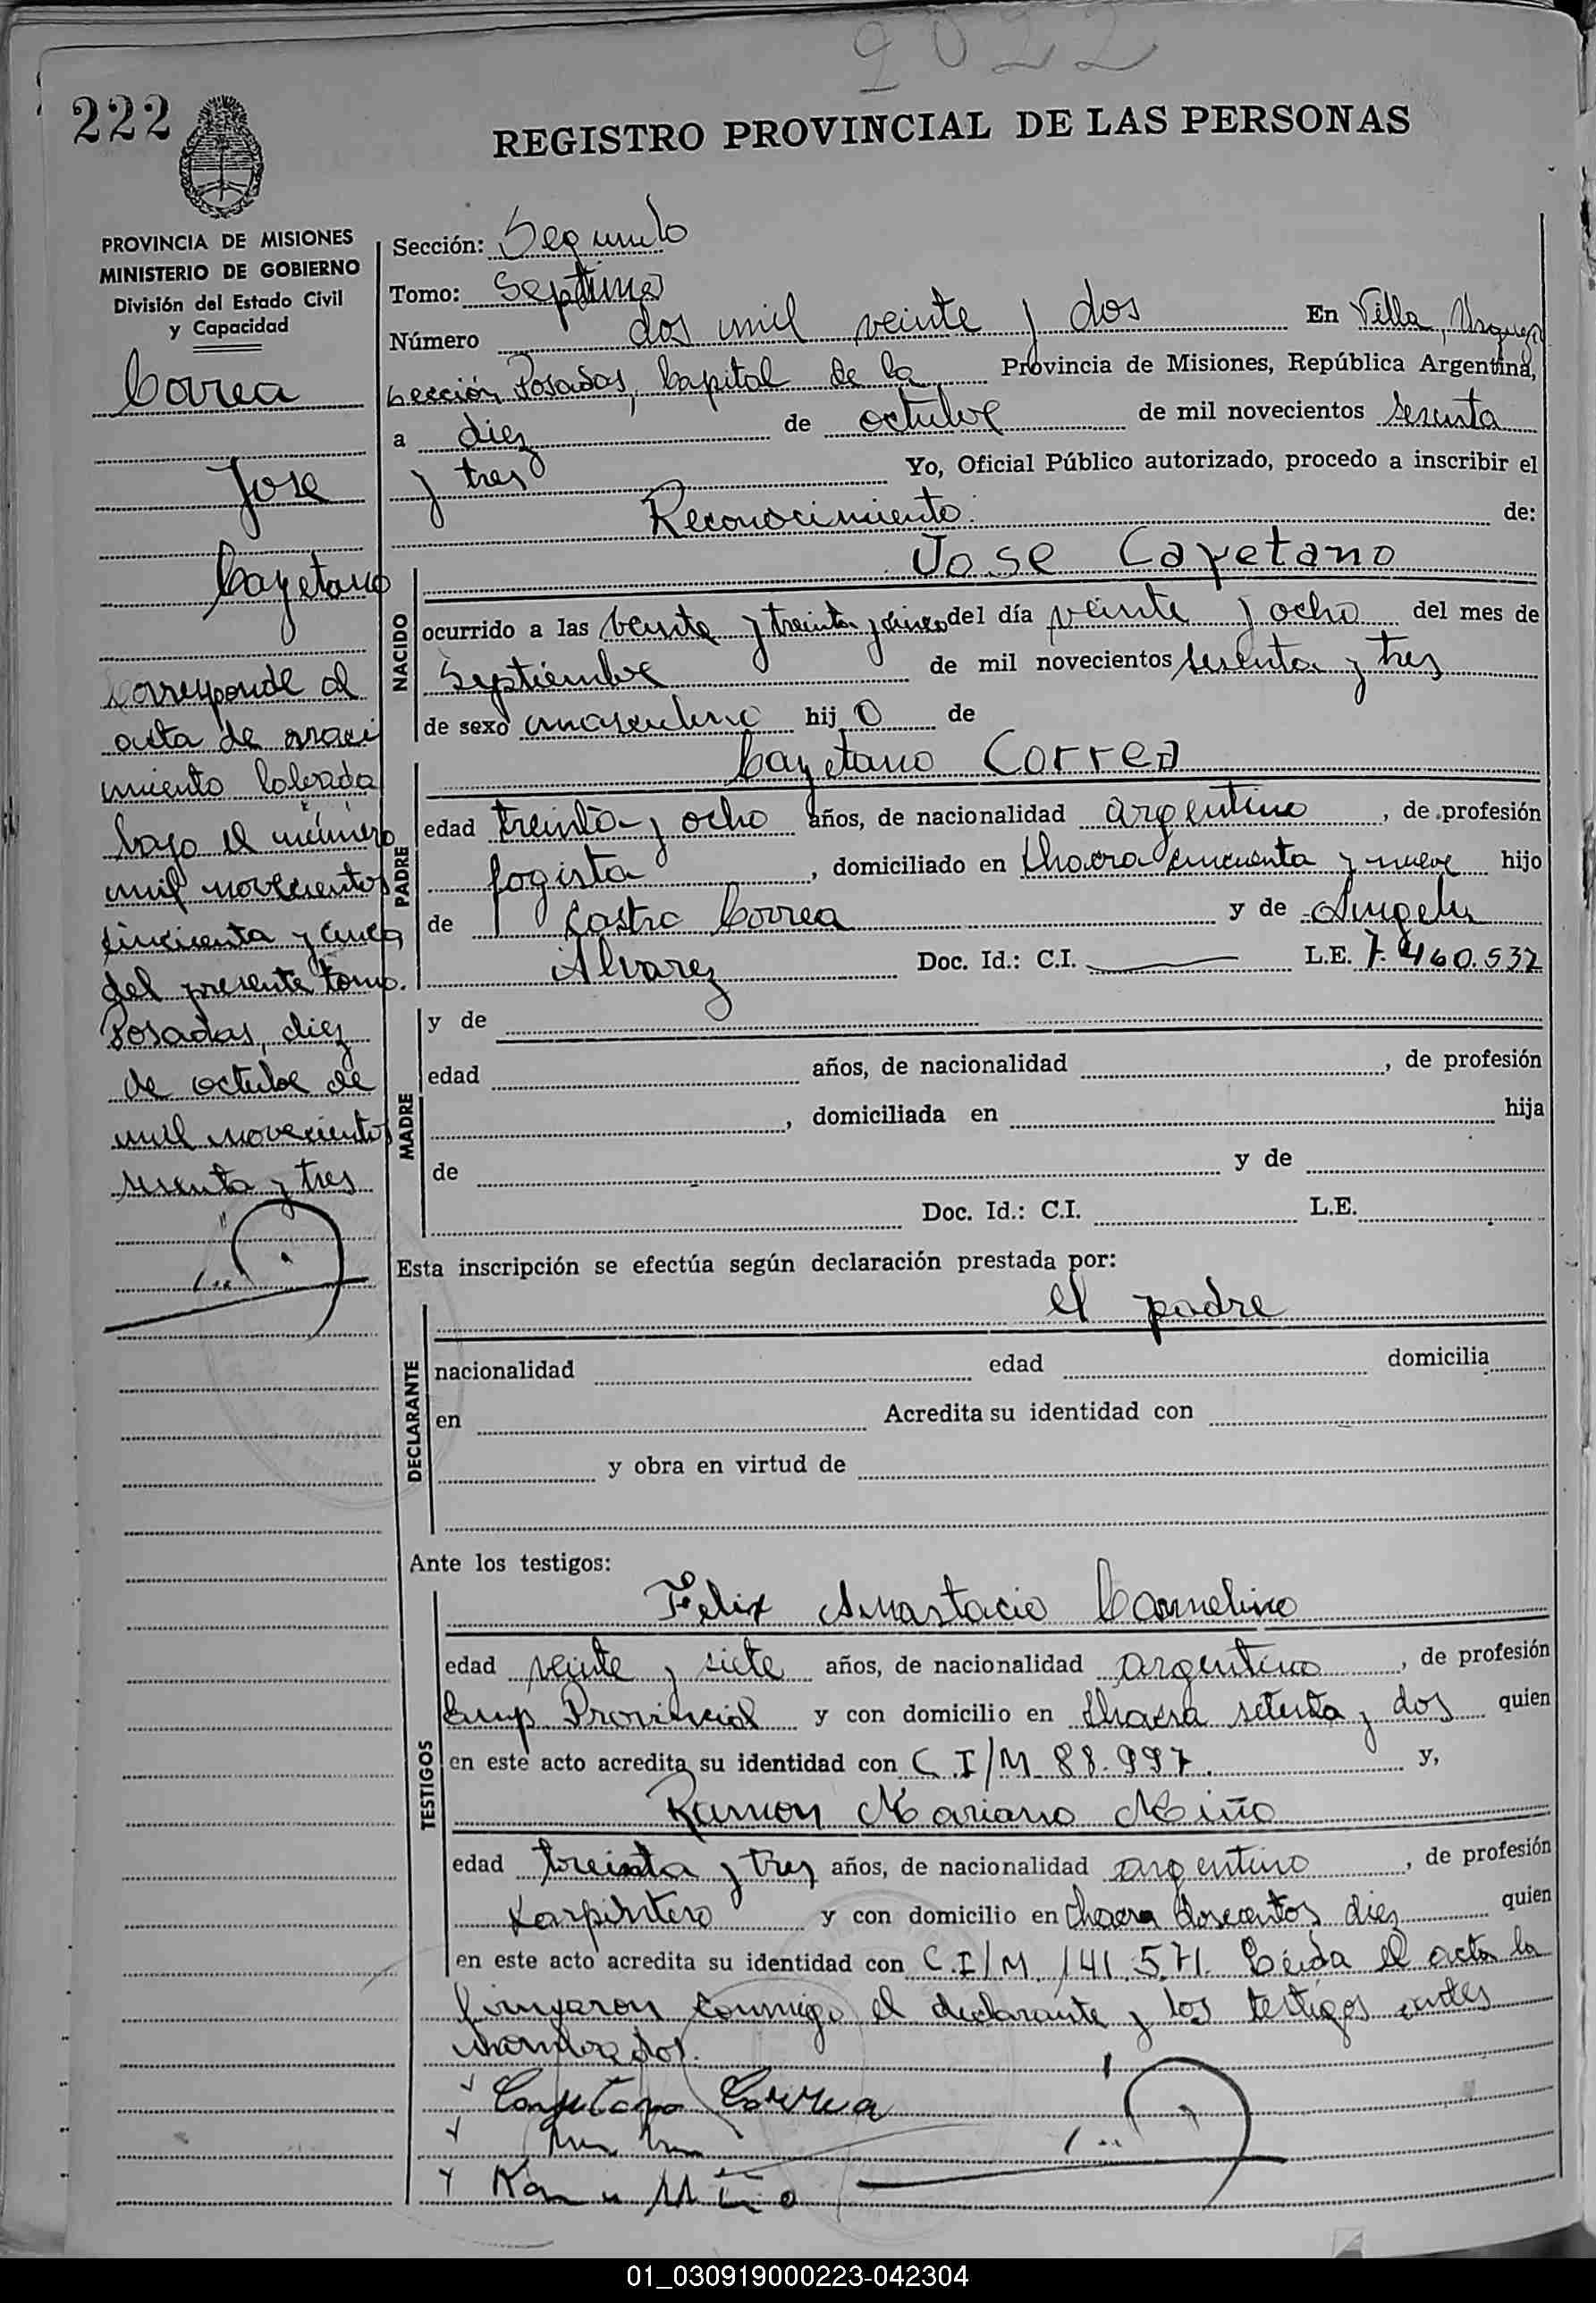 2022
222
REGISTRO PROVINCIAL DE LAS PERSONAS
PROVINCIA DE MISIONES
MINISTERIO DE GOBIERNO
División del Estado Civil
y Capacidad
Correa
Jose
Cayetano
Corresponde al
acta de naci
miento labrada
bajo el número
mil novecientos
cincuenta y cinco
del presente tomo.
Posadas, diez
de octubre de
mil novecientos
sesenta y tres
Sección: Segundo
Tomo: Septimo
Número dos mil veinte y dos En Villa, Urquiza
Sección Posadas, Capital de la Provincia de Misiones, República Argentina,
a diez de octubre de mil novecientos sesenta
y tres Yo, Oficial Público autorizado, procedo a inscribir el
Reconocimiento. de:
NACIDO
Jose Cayetano
ocurrido a las veinte y treinta y cinco del día veinte y ocho del mes de
Septiembre de mil novecientos sesenta y tres
de sexo masculino hij o de
PADRE
Cayetano Correa
edad treinta y ocho años, de nacionalidad argentino, de profesión
fogista, domiciliado en Chacra cincuenta y nueve hijo
de Castro Correa y de Angela
Alvarez Doc. Id.: C.I. L.E. 7.460.532
MADRE
y de
edad años, de nacionalidad , de profesión
, domiciliada en hija
de y de
Doc. Id.: C.I. L.E.
Esta inscripción se efectúa según declaración prestada por:
DECLARANTE
el padre
nacionalidad edad domicilia
en Acredita su identidad con
y obra en virtud de
Ante los testigos:
TESTIGOS
Felix Anastacio
edad veinte y siete años, de nacionalidad argentino, de profesión
Emp Provincial y con domicilio en Chacra setenta y dos quien
en este acto acredita su identidad con C.I/M 88.997. y,
Ramon Mariano Miño
edad treinta y tres años, de nacionalidad argentino, de profesión
Karpintero y con domicilio en Chacra doscentos diez quien
en este acto acredita su identidad con C.I/M. 141.571. Leida el acta la
firmaron conmigo el declarante y los testigos antes
nombrados.
Cayetano Correa
Miño
01_030919000223-042304